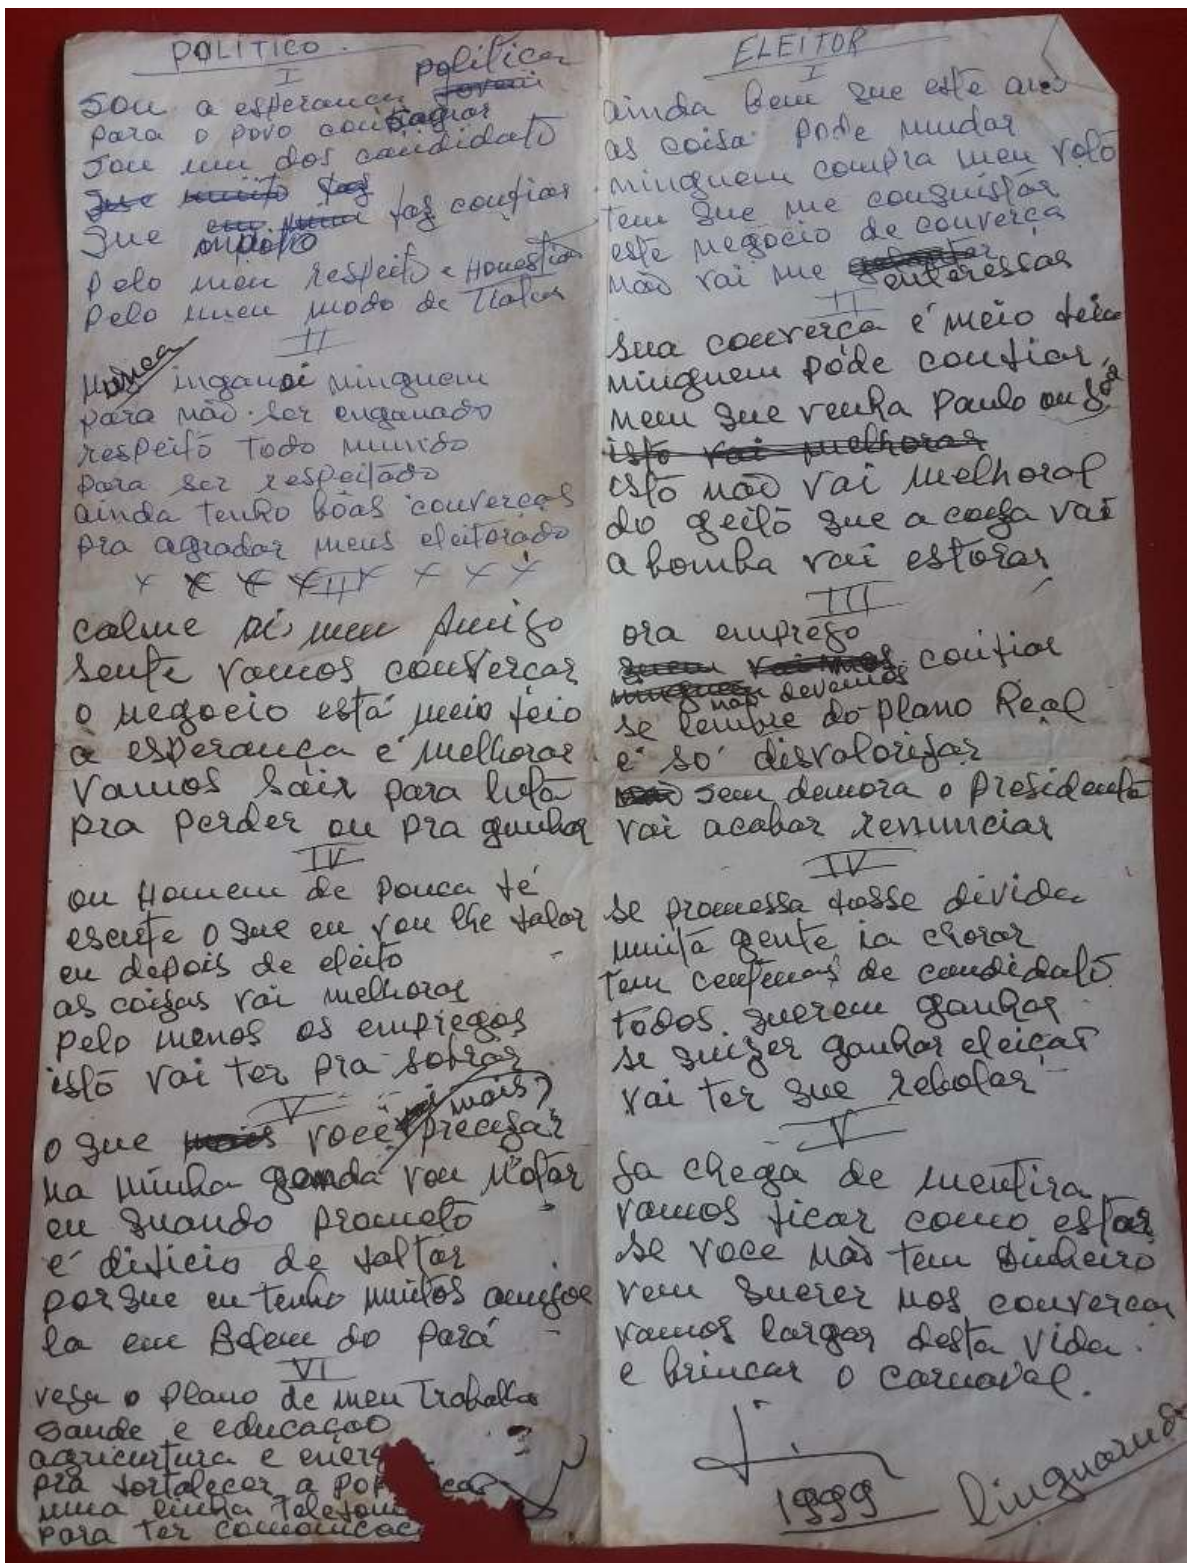 POLITICO
I
Sou a esperança politica
para o povo
sou um dos candidato
que faz confiar
pelo meu respeito e Honestia
pelo meu modo de Tratar
II
Nunca inganei ninguem
para não ser enganado
respeito Todo mundo
para ser respeitado
ainda tenho bôas converças
pra agradar meus eleitorado
III
calme ai meu Amigo
sente vamos converçar
o negocio está meio feio
a esperança é melhorar
vamos sair para luta
pra perder ou pra ganhar
IV
ou Homem de pouca fé
escute o que eu vou lhe falar
eu depois de eleito
as coizas vai melhorar
pelo menos os empregos
isto vai ter pra sobrar
V
o que você vai mais precizar
na minha genda vou Notar
eu quando prometo
é dificio de faltar
porque eu tenho muitos amigos
la em Belem do Pará
VI
veja o plano de meu Trabalho
saude e educaçao
agricurtura e energ
pra fortalecer a pop
uma linha Telefoni
para ter comonicac
ELEITOR
I
ainda bem que este ano
as coisa pode mudar
ninguem compra meu voto
tem que me conquistar
este negocio de converça
não vai me enteressar
II
sua converça é meio feia
ninguem póde confiar
nem que venha Paulo ou
isto não vai melhoral
do geito que a coiza vai
a bomba vai estorar
III
ora emprego
não devemos confiar
se lembre do plano Real
é só disvalorizar
sem demora o presidente
vai acabar renunciar
IV
se promessa fosse divida
muita gente ia chorar
tem centenas de candidato
todos querem ganhar
se quizer ganhar eleiçao
vai ter que rebolar
V
Ja chega de mentira
vamos ficar como estar
se voce não tem dinheiro
vem querer nos converçar
vamos largar desta vida
e brincar o carnaval.
1999
linguarudo